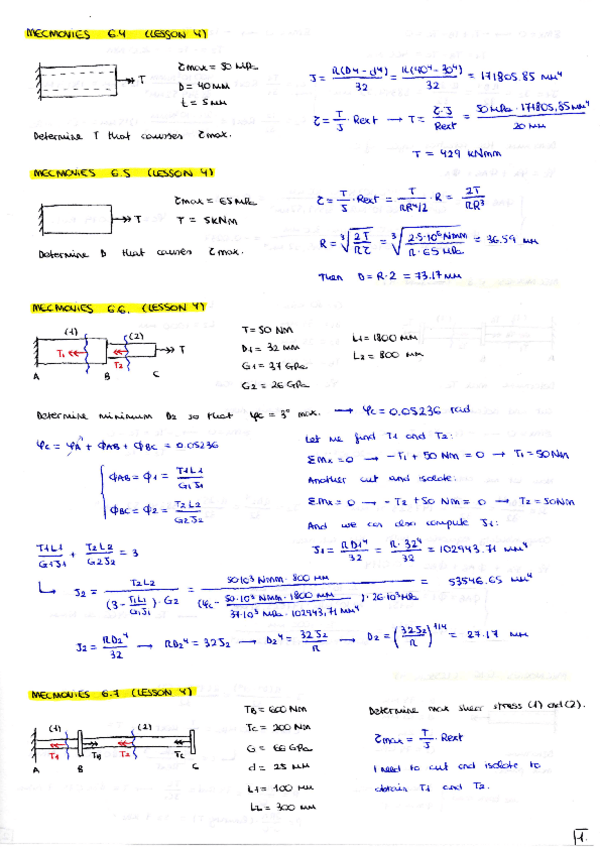 MECMOVIES 6.4 (LESSON 4)
τmax = 50 MPa
D = 40 mm
t = 5 mm
T
Determine T that causses τmax.
J = π(D⁴-d⁴)/32 = π(40⁴-30⁴)/32 = 171805.85 mm⁴
τ = T/J · Rext → T = τ·J/Rext = 50 MPa · 171805,85 mm⁴/20 mm
T = 429 kNmm
MECMOVIES 6.5 (LESSON 4)
τmax = 65 MPa
T = 5kNm
T
Determine D that causes τmax.
τ = T/J · Rext = T/(πR⁴/2) · R = 2T/πR³
R = ³√(2T/πτ) = ³√(2·5·10⁶ Nmm/π·65 MPa) = 36.59 mm
Then D = R·2 = 73.17 mm
MECMOVIES 6.6. (LESSON 4)
(1) (2)
T1 T2 T
A B C
T = 50 Nm
D1 = 32 mm
G1 = 37 GPa
G2 = 26 GPa
L1 = 1800 mm
L2 = 800 mm
Determine minimum D2 so that φc = 3° max. → φc = 0.05236 rad
φc = φA + ϕAB + ϕBC = 0.05236
ϕAB = ϕ1 = T1L1/G1J1
ϕBC = ϕ2 = T2L2/G2J2
Let me find T1 and T2:
ΣMx = 0 → -T1 + 50 Nm = 0 → T1 = 50Nm
Another cut and isolate:
ΣMx = 0 → -T2 + 50 Nm = 0 → T2 = 50Nm
And we can also compute J1:
J1 = πD1⁴/32 = π·32⁴/32 = 102943.71 mm⁴
T1L1/G1J1 + T2L2/G2J2 = 3
↳ J2 = T2L2/((3 - T1L1/G1J1)·G2) = 50·10³ Nmm · 800 mm/((φc - 50·10³ Nmm · 1800 mm/37·10³ MPa · 102943,71 mm⁴)·26·10³ MPa) = 53546.65 mm⁴
J2 = πD2⁴/32 → πD2⁴ = 32J2 → D2⁴ = 32J2/π → D2 = (32J2/π)^1/4 = 27.17 mm
MECMOVIES 6.7 (LESSON 4)
(1) (2)
T1 TB T2 TC
A B C
TB = 600 Nm
TC = 200 Nm
G = 66 GPa
d = 25 mm
L1 = 100 mm
L2 = 300 mm
Determine max shear stress (1) and (2).
τmax = T/J · Rext
I need to cut and isolate to
obtain T1 and T2.
1.